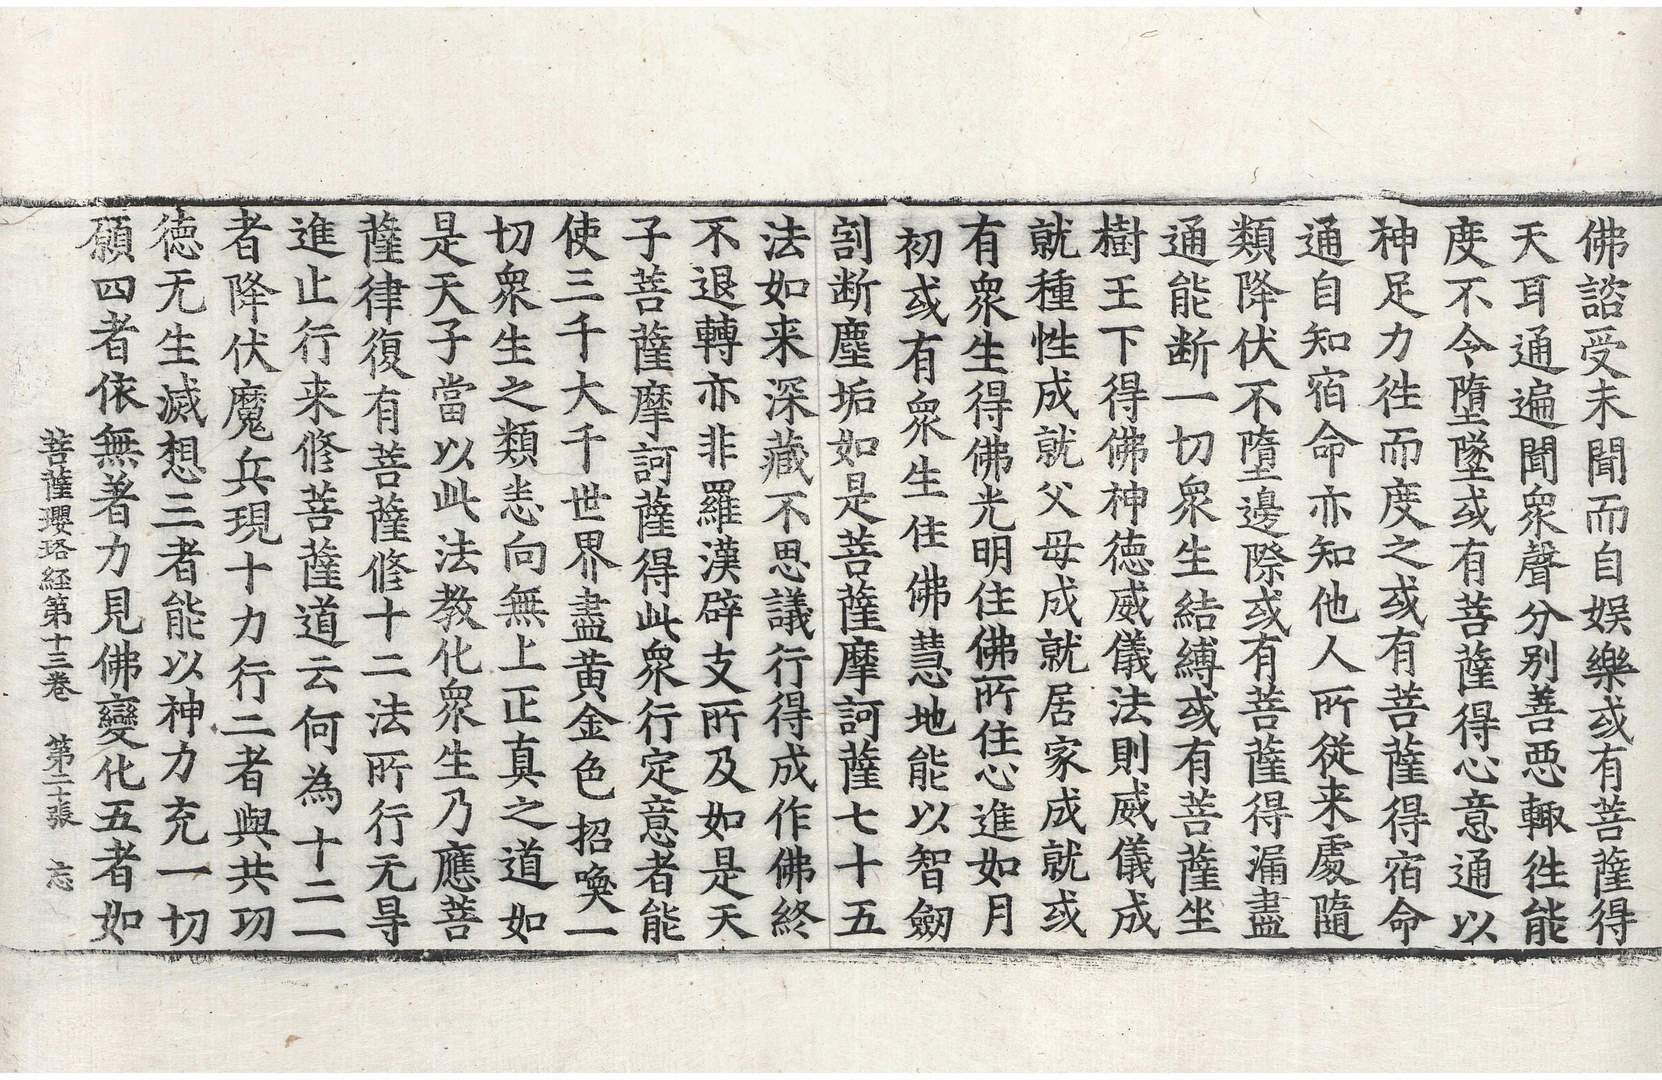 佛諮受未聞而自娱樂或有菩薩得
天耳通遍聞衆聲分别善惡輙徃能
度不令墮墜或有菩薩得心意通以
神足力徃而度之或有菩薩得宿命
通自知宿命亦知他人所従来處隨
類降伏不墮邊際或有菩薩得漏盡
通能断一切衆生結縛或有菩薩坐
樹王下得佛神徳威儀法則威儀成
就種性成就父母成就居家成就或
有衆生得佛光明住佛所住心進如月
初或有衆生住佛慧地能以智劒
割断塵垢如是菩薩摩訶薩七十五
法如来深藏不思議行得成作佛終
不退轉亦非羅漢辟支所及如是天
子菩薩摩訶薩得此衆行定意者能
使三千大千世界盡黄金色招喚一
切衆生之類悉向無上正真之道如
是天子當以此法教化衆生乃應菩
薩律復有菩薩修十二法所行无㝵
進止行来修菩薩道云何為十二一
者降伏魔兵現十力行二者與共功
徳无生滅想三者能以神力充一切
願四者依無著力見佛變化五者如
菩薩瓔珞経第十三巻 第二十張 忘